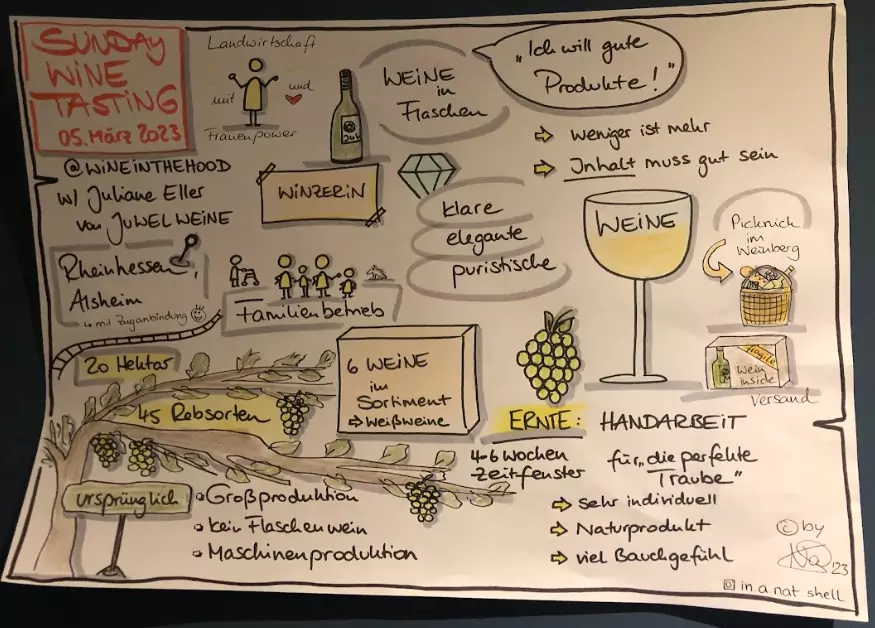 SUNDAY
WINE
TASTING
05. März 2023
@WINEINTHEHOOD
w/ Juliane Eller
von JUWEL WEINE
Rheinhessen,
Alsheim
↳ mit Zuganbindung
Landwirtschaft
mit
und
Frauenpower
WEINE
in
Flaschen
„Ich will gute
Produkte!"
⇨ weniger ist mehr
⇨ Inhalt muss gut sein
WINZERIN
klare
elegante
puristische
WEINE
Picknick
im
Weinberg
fragile
Wein
inside
Versand
Familienbetrieb
20 Hektar
45 Rebsorten
6 WEINE
im
Sortiment
⇨ Weißweine
ERNTE: HANDARBEIT
4-6 Wochen
Zeitfenster
für „die perfekte
Traube"
⇨ sehr individuell
⇨ Naturprodukt
⇨ viel Bauchgefühl
ursprünglich
• Großproduktion
• kein Flaschenwein
• Maschinenproduktion
© by
'23
in.a.nat.shell